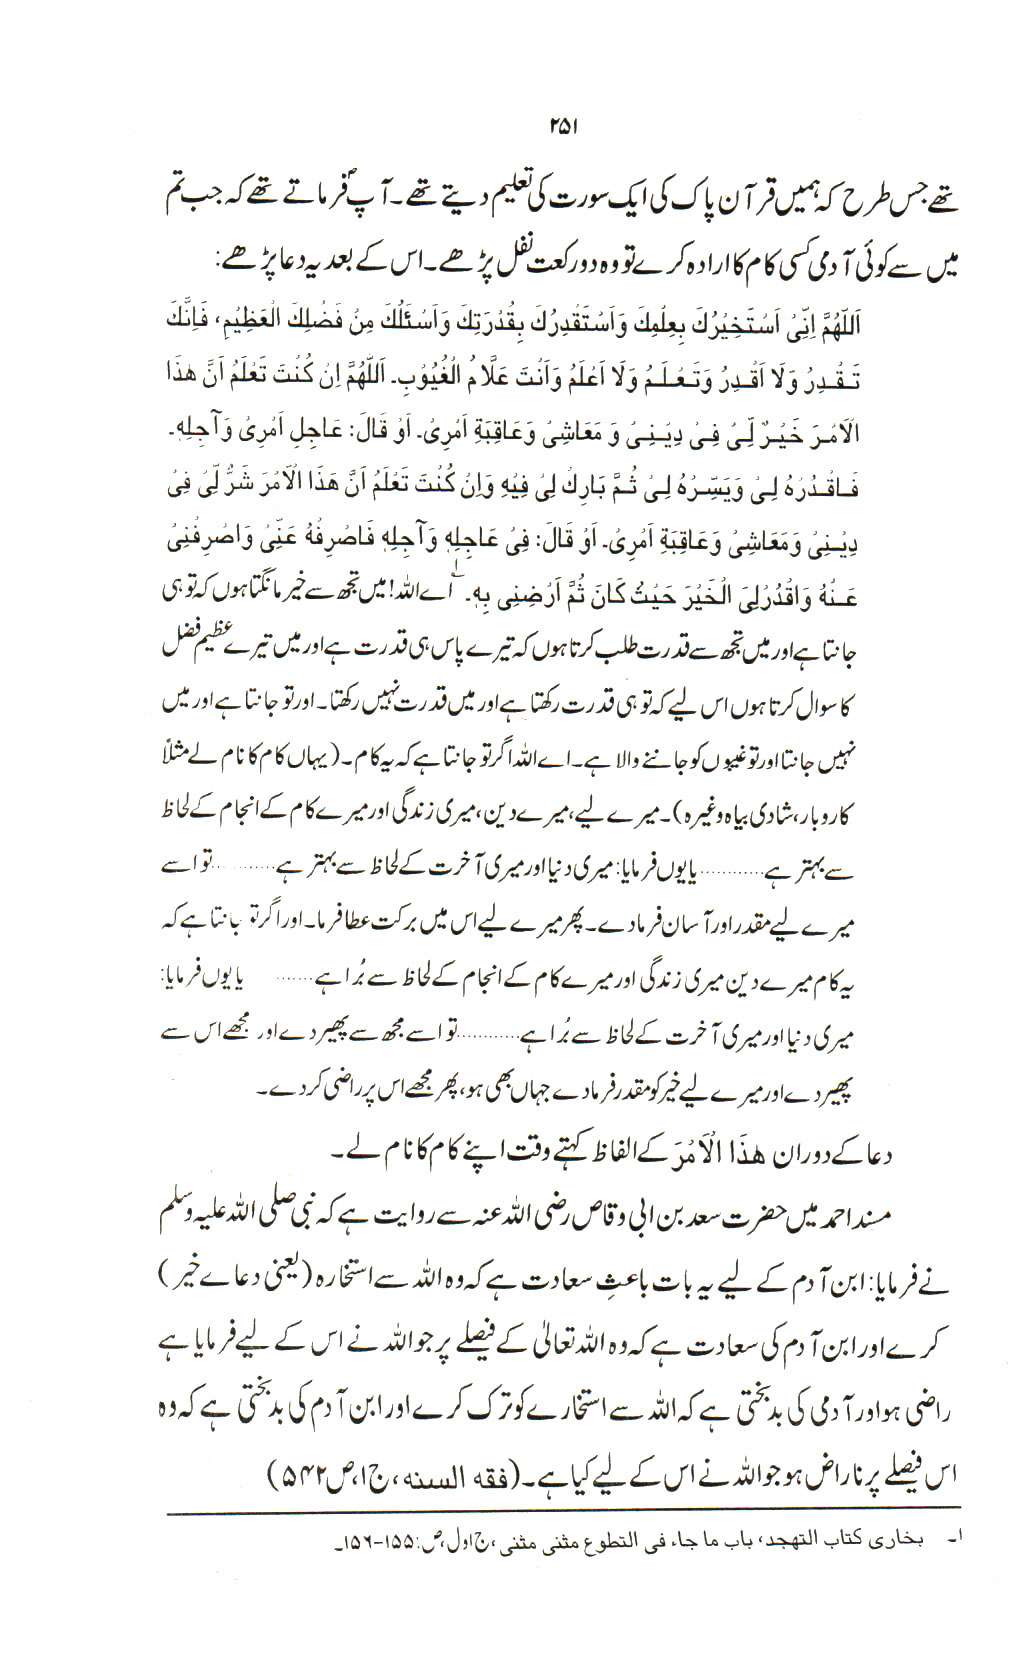 ۲۵۱
تھے جس طرح کہ ہمیں قرآن پاک کی ایک سورت کی تعلیم دیتے تھے۔ آپؐ فرماتے تھے کہ جب تم
میں سے کوئی آدمی کسی کام کا ارادہ کرے تو وہ دو رکعت نفل پڑھے۔ اس کے بعد یہ دعا پڑھے:
اَللّٰهُمَّ اِنِّیْ اَسْتَخِیْرُكَ بِعِلْمِكَ وَاَسْتَقْدِرُكَ بِقُدْرَتِكَ وَاَسْئَلُكَ مِنْ فَضْلِكَ الْعَظِیْمِ، فَاِنَّكَ
تَقْدِرُ وَلَا اَقْدِرُ وَتَعْلَمُ وَلَا اَعْلَمُ وَاَنْتَ عَلَّامُ الْغُیُوْبِ۔ اَللّٰهُمَّ اِنْ كُنْتَ تَعْلَمُ اَنَّ هٰذَا
الْاَمْرَ خَیْرٌ لِّیْ فِیْ دِیْنِیْ وَ مَعَاشِیْ وَعَاقِبَةِ اَمْرِیْ۔ اَوْ قَالَ: عَاجِلِ اَمْرِیْ وَآجِلِهٖ۔
فَاقْدُرْهُ لِیْ وَیَسِّرْهُ لِیْ ثُمَّ بَارِكْ لِیْ فِیْهِ وَاِنْ كُنْتَ تَعْلَمُ اَنَّ هَذَا الْاَمْرَ شَرٌّ لِّیْ فِیْ
دِیْنِیْ وَمَعَاشِیْ وَعَاقِبَةِ اَمْرِیْ۔ اَوْ قَالَ: فِیْ عَاجِلِهٖ وَآجِلِهٖ فَاصْرِفْهُ عَنِّیْ وَاصْرِفْنِیْ
عَنْهُ وَاقْدُرْلِیَ الْخَیْرَ حَیْثُ كَانَ ثُمَّ اَرْضِنِی بِهٖ۔ ۱؎ اے اللہ! میں تجھ سے خیر مانگتا ہوں کہ تو ہی
جانتا ہے اور میں تجھ سے قدرت طلب کرتا ہوں کہ تیرے پاس ہی قدرت ہے اور میں تیرے عظیم فضل
کا سوال کرتا ہوں اس لیے کہ تو ہی قدرت رکھتا ہے اور میں قدرت نہیں رکھتا۔ اور تو جانتا ہے اور میں
نہیں جانتا اور تو غیبوں کو جاننے والا ہے۔ اے اللہ اگر تو جانتا ہے کہ یہ کام۔ (یہاں کام کا نام لے مثلاً
کاروبار، شادی بیاہ وغیرہ)۔ میرے لیے، میرے دین، میری زندگی اور میرے کام کے انجام کے لحاظ
سے بہتر ہے............ یا یوں فرمایا: میری دنیا اور میری آخرت کے لحاظ سے بہتر ہے............ تو اسے
میرے لیے مقدر اور آسان فرمادے۔ پھر میرے لیے اس میں برکت عطا فرما۔ اور اگر تو جانتا ہے کہ
یہ کام میرے دین میری زندگی اور میرے کام کے انجام کے لحاظ سے بُرا ہے....... یا یوں فرمایا:
میری دنیا اور میری آخرت کے لحاظ سے بُرا ہے............ تو اسے مجھ سے پھیر دے اور مجھے اس سے
پھیر دے اور میرے لیے خیر کو مقدر فرمادے جہاں بھی ہو، پھر مجھے اس پر راضی کردے۔
دعا کے دوران هٰذَا الْاَمْرَ کے الفاظ کہتے وقت اپنے کام کا نام لے۔
مسند احمد میں حضرت سعد بن ابی وقاص رضی اللہ عنہ سے روایت ہے کہ نبی صلی اللہ علیہ وسلم
نے فرمایا: ابن آدم کے لیے یہ بات باعثِ سعادت ہے کہ وہ اللہ سے استخارہ (یعنی دعاے خیر)
کرے اور ابن آدم کی سعادت ہے کہ وہ اللہ تعالیٰ کے فیصلے پر جو اللہ نے اس کے لیے فرمایا ہے
راضی ہو اور آدمی کی بدبختی ہے کہ اللہ سے استخارے کو ترک کرے اور ابن آدم کی بدبختی ہے کہ وہ
اس فیصلے پر ناراض ہو جو اللہ نے اس کے لیے کیا ہے۔ (فقه السنه، ج۱، ص۵۴۲)
۱۔ بخاری کتاب التهجد، باب ما جاء فی التطوع مثنی مثنی، ج اول، ص:۱۵۵-۱۵۶۔